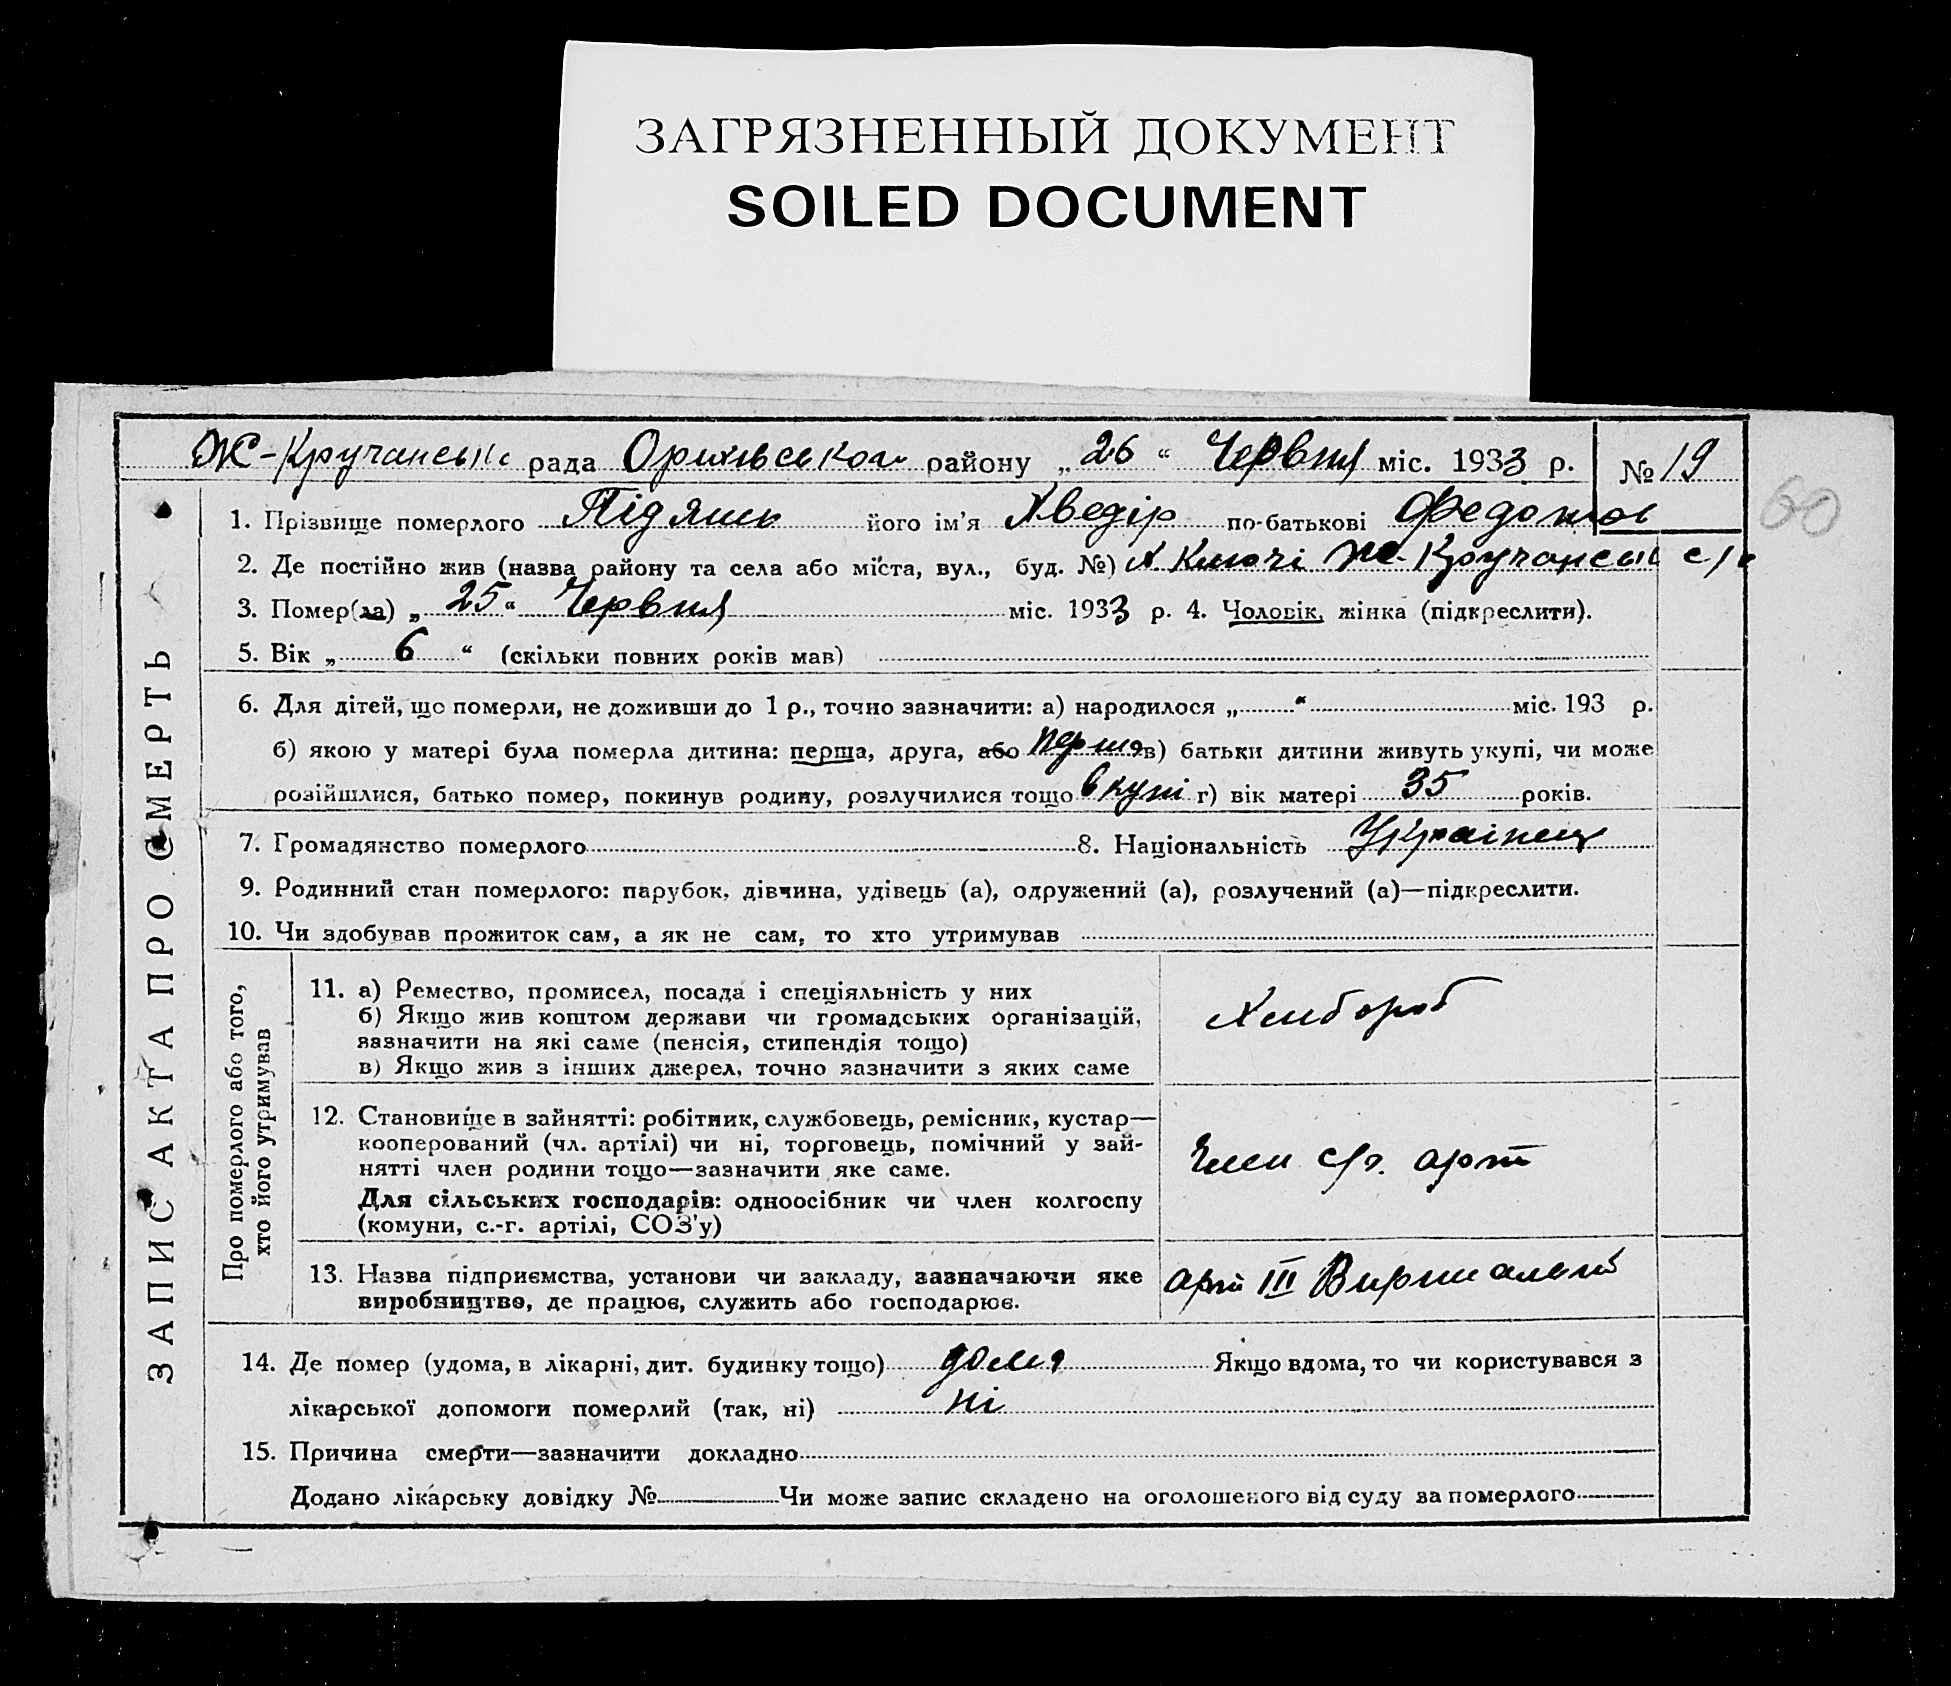 ЗАГРЯЗНЕННЫЙ ДОКУМЕНТ
SOILED DOCUMENT
рада району „ 26 “ Червня міс. 1933 р. № 19
60
1. Прізвище померлого його ім’я Хведір по-батькові
2. Де постійно жив (назва району та села або міста, вул., буд. №) х. Ключі
3. Помер(ла) „ 25 “ Червня міс. 1933 р. 4. Чоловік, жінка (підкреслити).
5. Вік „ 6 “ (скільки повних років мав)
6. Для дітей, що померли, не доживши до 1 р., точно зазначити: а) народилося „ “ міс. 193 р.
б) якою у матері була померла дитина: перша, друга, або перша в) батьки дитини живуть укупі, чи може
розійшлися, батько помер, покинув родину, розлучилися тощо вкупі г) вік матері 35 років.
7. Громадянство померлого 8. Національність Українец
9. Родинний стан померлого: парубок, дівчина, удівець (а), одружений (а), розлучений (а)—підкреслити.
10. Чи здобував прожиток сам, а як не сам, то хто утримував
ЗАПИС АКТА ПРО СМЕРТЬ
Про померлого або того,
хто його утримував
11. а) Ремество, промисел, посада і спеціяльність у них
б) Якщо жив коштом держави чи громадських організацій,
зазначити на які саме (пенсія, стипендія тощо)
в) Якщо жив з інших джерел, точно зазначити з яких саме
Хлибороб
12. Становище в зайнятті: робітник, службовець, ремісник, кустар—
кооперований (чл. артілі) чи ні, торговець, помічний у зай-
нятті член родини тощо—зазначити яке саме.
Для сільських господарів: одноосібник чи член колгоспу
(комуни, с.-г. артілі, СОЗ'у)
Член с/г. арт
13. Назва підприємства, установи чи закладу, зазначаючи яке
виробництво, де працює, служить або господарює.
арт III
14. Де помер (удома, в лікарні, дит. будинку тощо) дома Якщо вдома, то чи користувався з
лікарської допомоги померлий (так, ні) ні
15. Причина смерти—зазначити докладно
Додано лікарську довідку № Чи може запис складено на оголошеного від суду за померлого